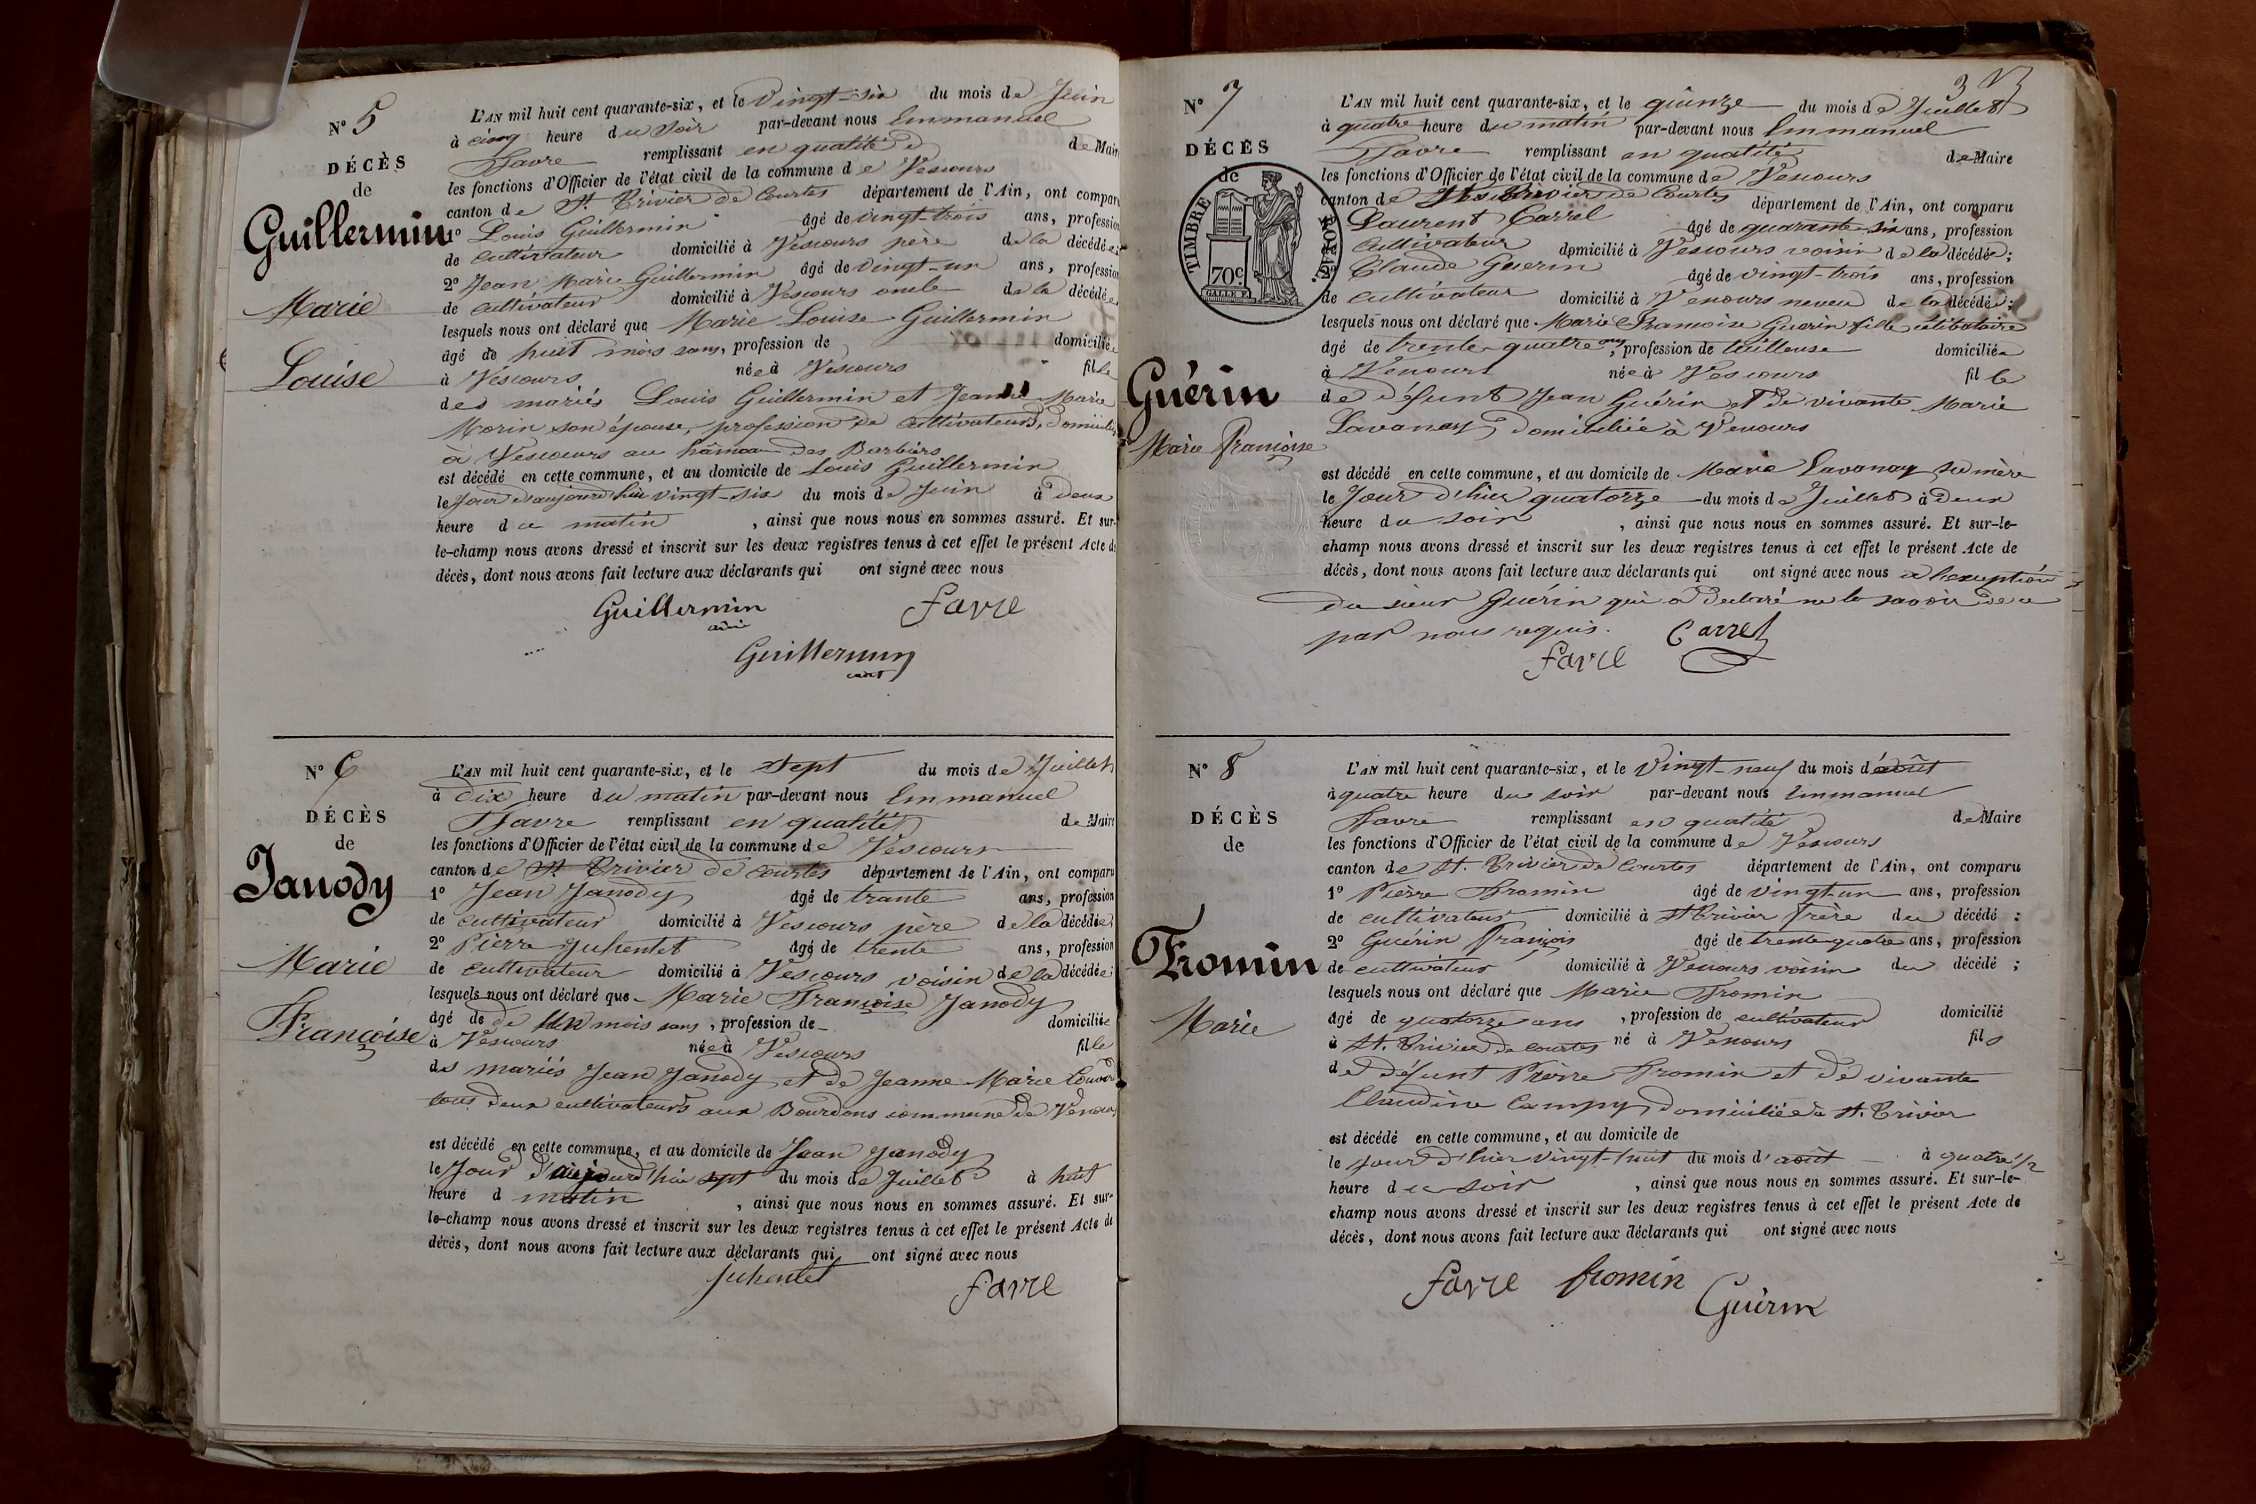 N° 5
DÉCÈS
de
Guillermin
Marie
Louise
L'AN mil huit cent quarante-six, et le Vingt-six du mois de Juin
à cinq heure du soir par-devant nous Emmanuel
Favre remplissant en qualité de Maire
les fonctions d'Officier de l'état civil de la commune de Vescours
canton de St Trivier de Courtes département de l'Ain, ont comparu
1° Louis Guillermin âgé de vingt-trois ans, profession
de cultivateur domicilié à Vescours père de la décédée;
2° Jean Marie Guillermin âgé de vingt-un ans, profession
de cultivateur domicilié à Vescours oncle de la décédée
lesquels nous ont déclaré que Marie Louise Guillermin
âgé de huit mois sans, profession de domiciliée
à Vescours née à Vescours fille
des mariés Louis Guillermin et Jeanne Marie
Morin son épouse, profession de cultivateurs, domiciliés
à Vescours au hameau des Barbiers
est décédé en cette commune, et au domicile de Louis Guillermin
le Jour d'aujourd'hui vingt-six du mois de Juin à deux
heure du matin, ainsi que nous nous en sommes assuré. Et sur-
le-champ nous avons dressé et inscrit sur les deux registres tenus à cet effet le présent Acte de
décès, dont nous avons fait lecture aux déclarants qui ont signé avec nous
Guillermin Favre
Guillermin
N° 6
DÉCÈS
de
Janody
Marie
Françoise
L'AN mil huit cent quarante-six, et le Sept du mois de Juillet
à dix heure du matin par-devant nous Emmanuel
Favre remplissant en qualité de Maire
les fonctions d'Officier de l'état civil de la commune de Vescours
canton de St Trivier de Courtes département de l'Ain, ont comparu
1° Jean Janody âgé de trante ans, profession
de cultivateur domicilié à Vescours père de la décédée;
2° Pierre Juhentet âgé de trente ans, profession
de cultivateur domicilié à Vescours voisin de la décédée;
lesquels nous ont déclaré que Marie Françoise Janody
âgé de de un mois sans, profession de domiciliée
à Vescours née à Vescours fille
des mariés Jean Janody et de Jeanne Marie
tous deux cultivateurs aux Bourdons commune de Vescours
est décédé en cette commune, et au domicile de Jean Janody
le Jour d'aujourd'hui sept du mois de Juillet à huit
heure d matin, ainsi que nous nous en sommes assuré. Et sur-
le-champ nous avons dressé et inscrit sur les deux registres tenus à cet effet le présent Acte de
décès, dont nous avons fait lecture aux déclarants qui ont signé avec nous
Juhentet Favre
N° 7
DÉCÈS
de
TIMBRE ROYAL
70c
Guérin
Marie françoise
L'AN mil huit cent quarante-six, et le quinze du mois de Juillet
à quatre heure du matin par-devant nous Emmanuel
Favre remplissant en qualité de Maire
les fonctions d'Officier de l'état civil de la commune de Vescours
canton de St Trivier de Courtes département de l'Ain, ont comparu
Laurent Carrel âgé de quarante-six ans, profession
cultivateur domicilié à Vescours voisin de la décédée;
Claude Guerin âgé de vingt-trois ans, profession
de cultivateur domicilié à Vescours neveu de la décédée;
lesquels nous ont déclaré que Marie Françoise Guerin fille célibataire
âgé de trente-quatre ans, profession de tailleuse domiciliée
à Vescours née à Vescours fille
de défunt Jean Guérin et de vivante Marie
Lavanay, domiciliée à Vescours
est décédé en cette commune, et au domicile de Marie Lavanay sa mère
le Jour d'hier quatorze du mois de Juillet à deux
heure du soir, ainsi que nous nous en sommes assuré. Et sur-le-
champ nous avons dressé et inscrit sur les deux registres tenus à cet effet le présent Acte de
décès, dont nous avons fait lecture aux déclarants qui ont signé avec nous a l'exception
du sieur Guérin qui a declaré ne le savoir de ce
par nous requis. Carrel
Favre
N° 8
DÉCÈS
de
Fromin
Marie
L'AN mil huit cent quarante-six, et le Vingt-neuf du mois d'août
à quatre heure du soir par-devant nous Emmanuel
Favre remplissant en qualité de Maire
les fonctions d'Officier de l'état civil de la commune de Vescours
canton de St. Trivier de Courtes département de l'Ain, ont comparu
1° Pierre Fromin âgé de vingt-un ans, profession
de cultivateur domicilié à St Trivier frère du décédé;
2° Guérin François âgé de trente-quatre ans, profession
de cultivateur domicilié à Vescours voisin du décédé;
lesquels nous ont déclaré que Marie Fromin
âgé de quatorze ans, profession de cultivateur domicilié
à St. Trivier de Courtes né à Vescours fils
de défunt Pierre Fromin et de vivante
Claudine Campy, domiciliée à St. Trivier
est décédé en cette commune, et au domicile de
le jour d'hier vingt-huit du mois d'août à quatre 1/2
heure du soir, ainsi que nous nous en sommes assuré. Et sur-le-
champ nous avons dressé et inscrit sur les deux registres tenus à cet effet le présent Acte de
décès, dont nous avons fait lecture aux déclarants qui ont signé avec nous
Favre fromin
Guèrin